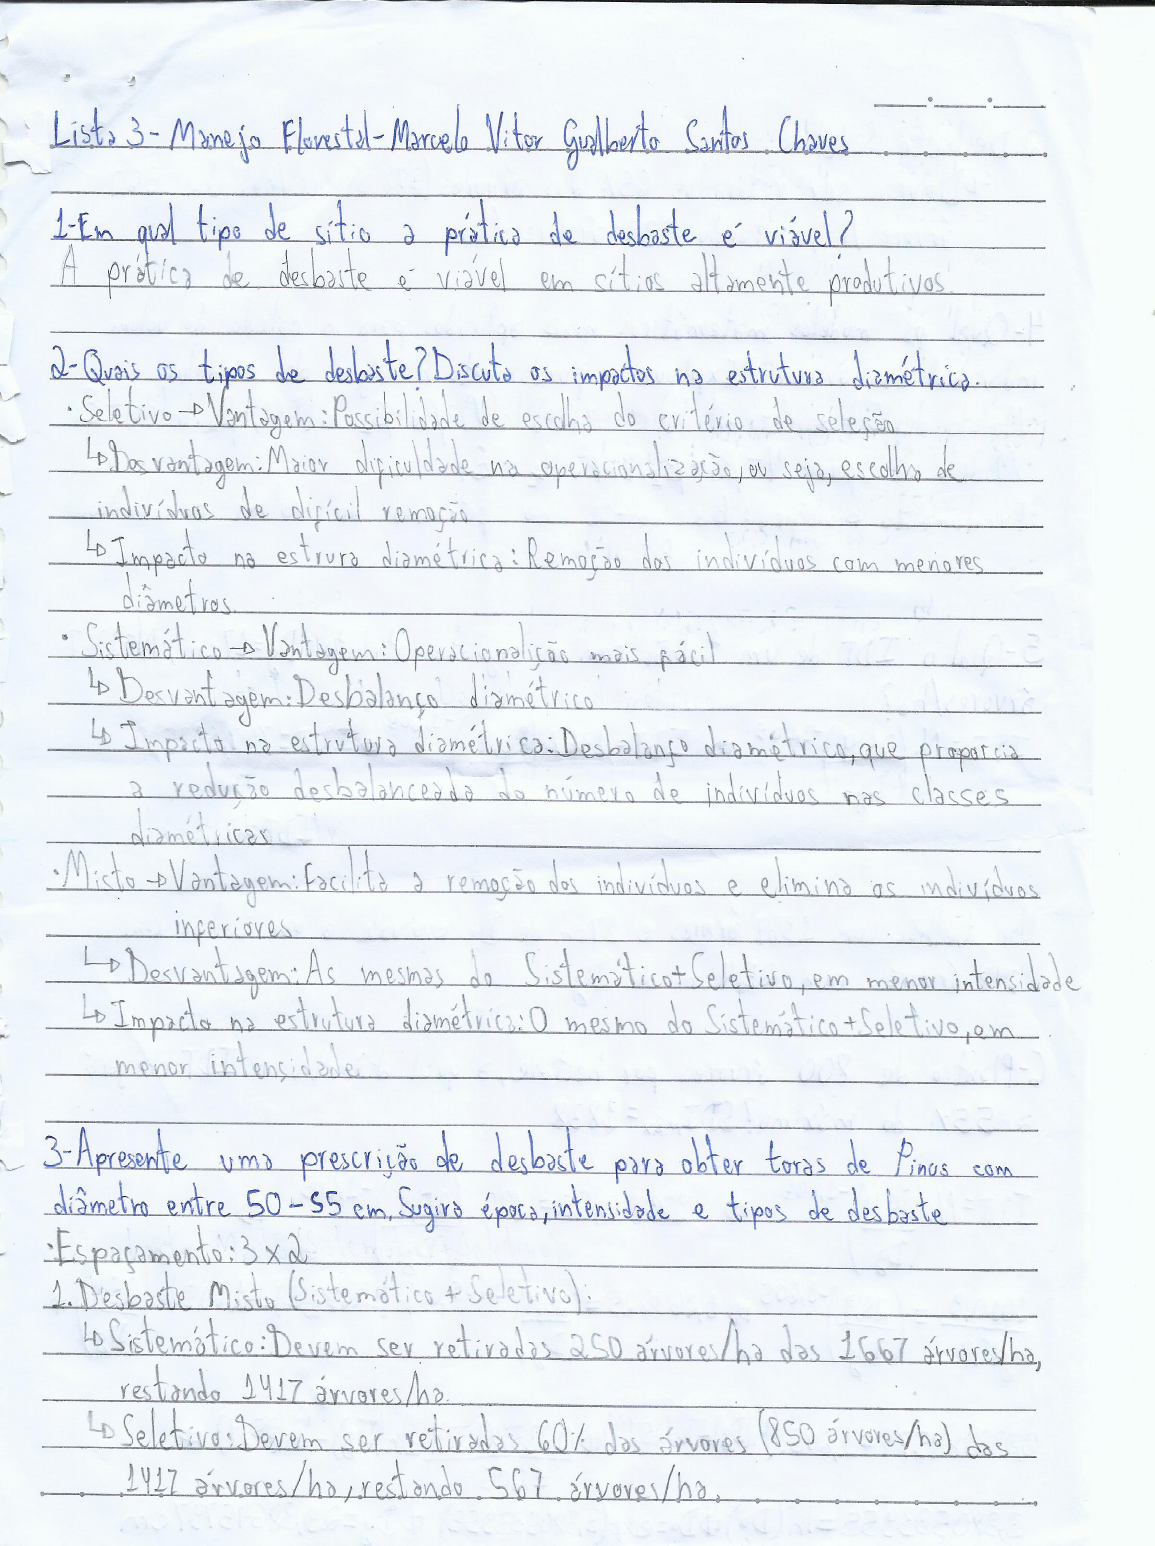 Lista 3 - Manejo Florestal - Marcelo Vitor Gualberto Santos Chaves
1-Em qual tipo de sítio a prática de desbaste é viável?
A prática de desbaste é viável em sítios altamente produtivos
2-Quais os tipos de desbaste? Discuta os impactos na estrutura diamétrica.
· Seletivo → Vantagem: Possibilidade de escolha do critério de seleção
↳ Desvantagem: Maior dificuldade na operacionalização, ou seja, escolha de
indivíduos de difícil remoção
↳ Impacto na estrura diamétrica: Remoção dos indivíduos com menores
diâmetros.
· Sistemático → Vantagem: Operacionalição mais fácil
↳ Desvantagem: Desbalanço diamétrico
↳ Impacto na estrutura diamétrica: Desbalanço diamétrico, que proporcia
a redução desbalanceada do número de indivíduos nas classes
diamétricas
· Misto → Vantagem: Facilita a remoção dos indivíduos e elimina os indivíduos
inferiores
↳ Desvantagem: As mesmas do Sistemático + Seletivo, em menor intensidade
↳ Impacto na estrutura diamétrica: O mesmo do Sistemático + Seletivo, em
menor intensidade
3-Apresente uma prescrição de desbaste para obter toras de Pinus com
diâmetro entre 50-55 cm. Sugira época, intensidade e tipos de desbaste
· Espaçamento: 3 x 2
1. Desbaste Misto (Sistemático + Seletivo):
↳ Sistemático: Devem ser retiradas 250 árvores/ha das 1667 árvores/ha,
restando 1417 árvores/ha.
↳ Seletivo: Devem ser retiradas 60% das árvores (850 árvores/ha) das
1417 árvores/ha, restando 567 árvores/ha.